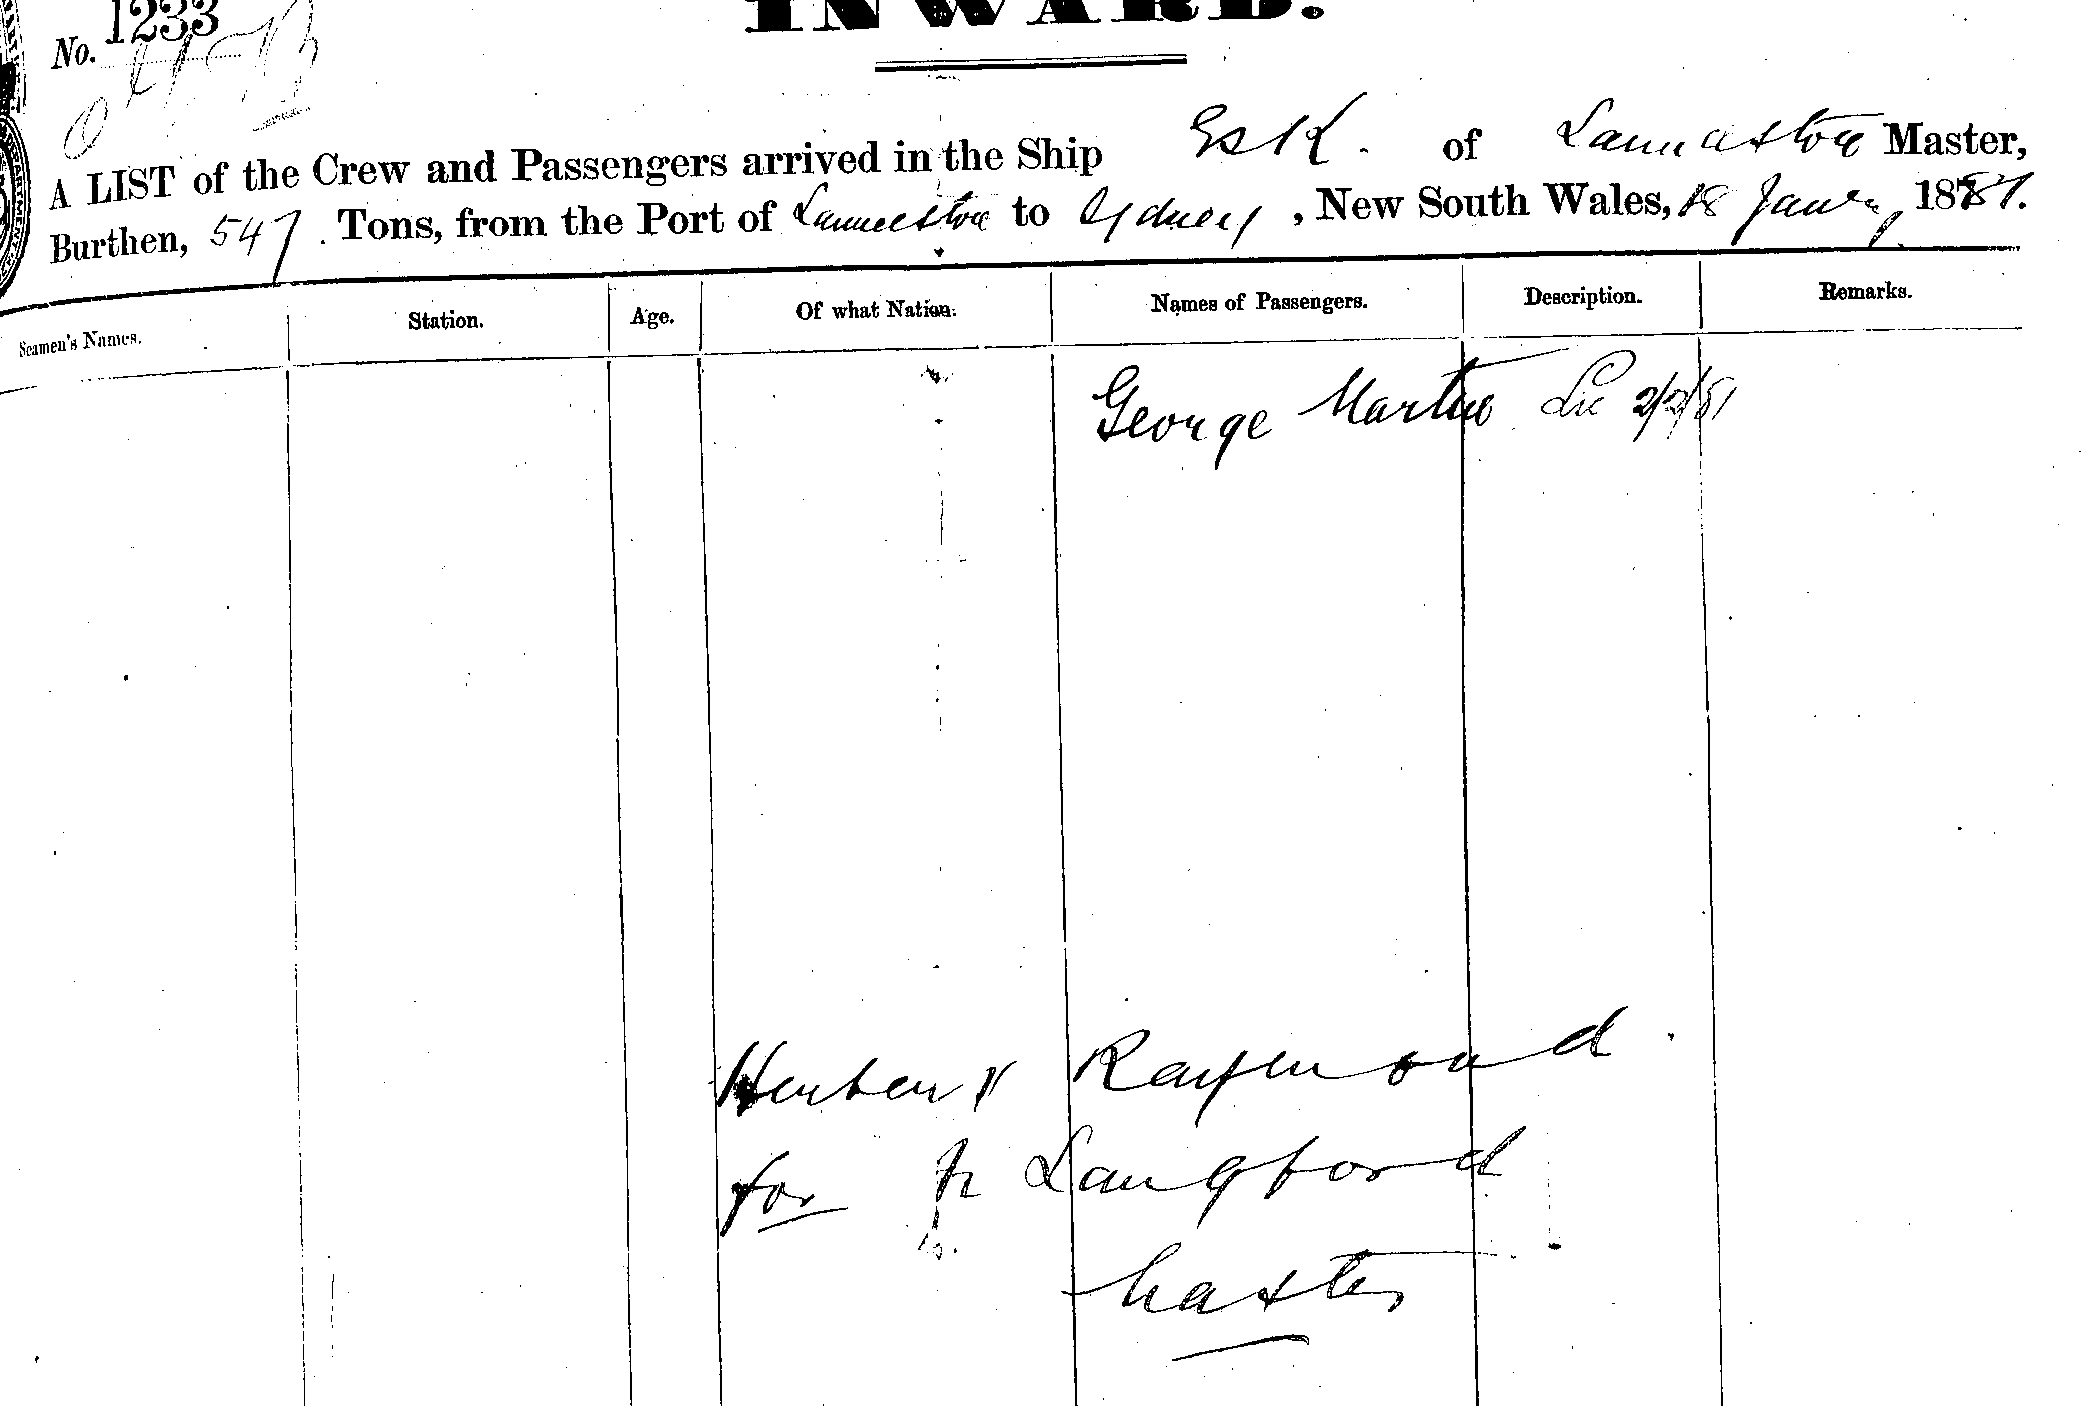 INWARD.
No. 1233
A LIST of the Crew and Passengers arrived in the Ship Esk. of Launceston Master,
Burthen, 547. Tons, from the Port of Launceston to Sydney, New South Wales, 18 January 1881.
Seamen's Names. Station. Age. Of what Nation. Names of Passengers. Description. Remarks.
George Martin 2/2/81
Herbert Raymond
for Langford
Master